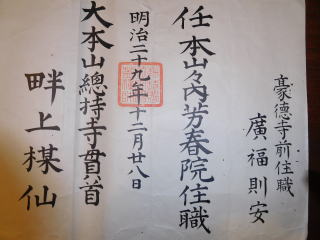 豪德寺前住職
廣福則安
任本山々內芳春院住職
明治二十九年十二月廿八日
大本山總持寺貫首
畔上楳仙